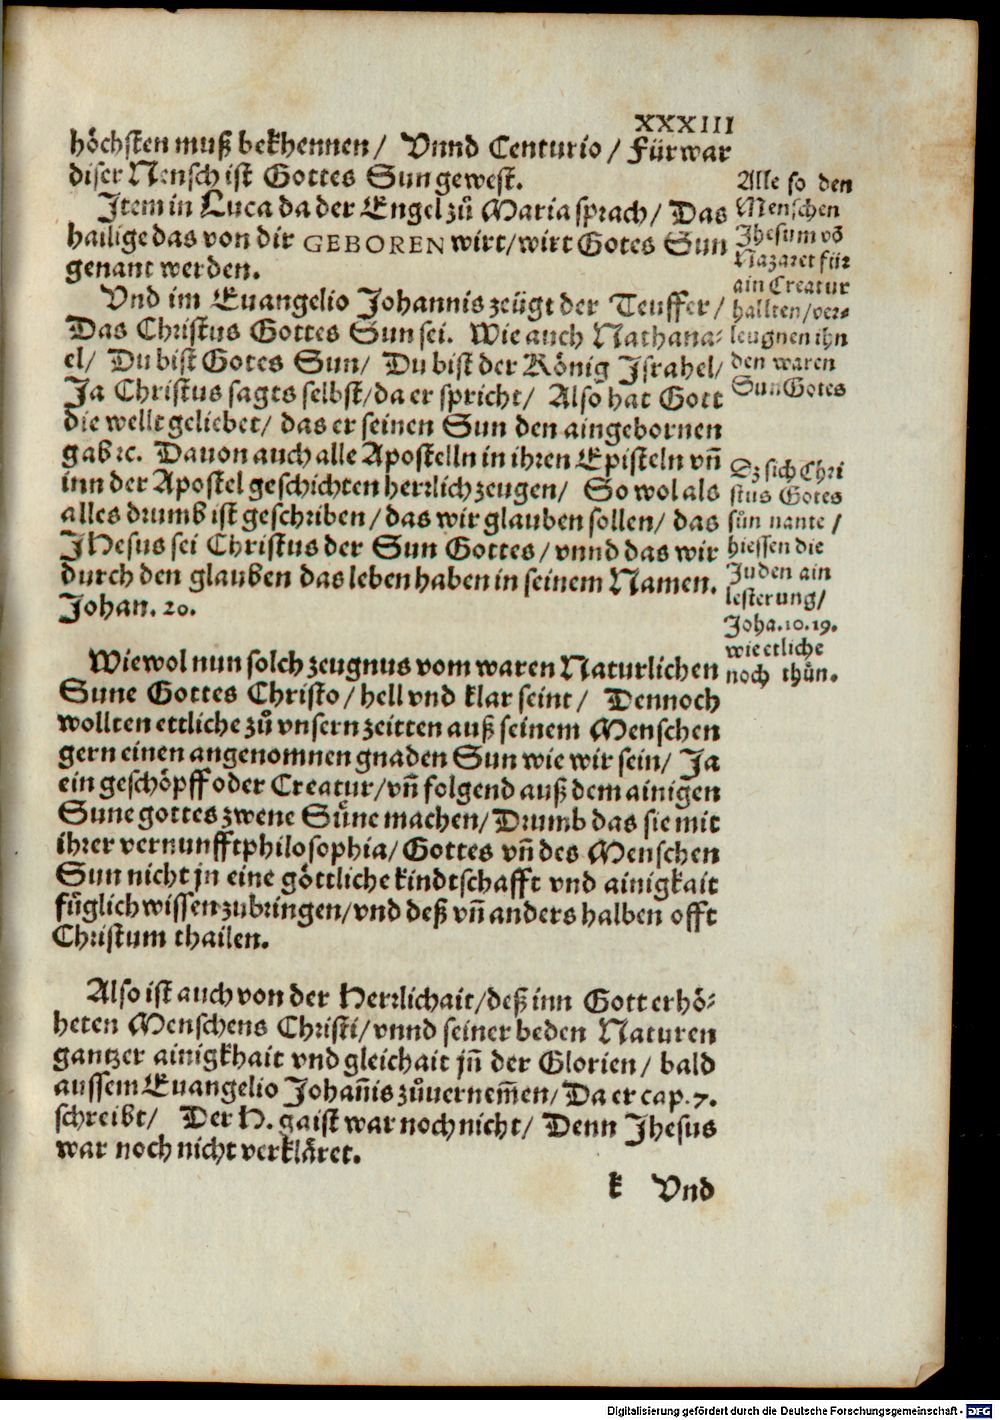 XXXIII
höchsten muß bekhennen/ Vnnd Centurio/ Fürwar
diser Mensch ist Gottes Sun gewest.
Item in Luca da der Engel zů Maria sprach/ Das
hailige das von dir GEBOREN wirt/wirt Gotes Sun
genant werden.
Vnd im Euangelio Johannis zeügt der Teuffer/
Das Christus Gottes Sun sei. Wie auch Nathana⸗
el/ Du bist Gotes Sun/ Du bist der König Israhel/
Ja Christus sagts selbst/da er spricht/ Also hat Gott
die wellt geliebet/ das er seinen Sun den aingebornen
gab ꝛc. Dauon auch alle Apostelln in ihren Episteln vñ
inn der Apostel geschichten herrlich zeugen/ So wol als
alles drumb ist geschriben/das wir glauben sollen/ das
JHesus sei Christus der Sun Gottes/vnnd das wir
durch den glauben das leben haben in seinem Namen.
Johan. 20.
Alle so den
Menschen
Jhesum võ
Nazaret für
ain Creatur
hallten/ver⸗
leugnen ihn
den waren
Sun Gotes
Dz sich Chri
stus Gotes
sůn nante/
hiessen die
Juden ain
lesterung/
Joha.10.19.
wie etliche
noch thůn.
Wiewol nun solch zeugnus vom waren Naturlichen
Sune Gottes Christo/hell vnd klar seint/ Dennoch
wollten ettliche zů vnsern zeitten auß seinem Menschen
gern einen angenomnen gnaden Sun wie wir sein/ Ja
ein geschöpff oder Creatur/vñ folgend auß dem ainigen
Sune gottes zwene Süne machen/Drumb das sie mit
ihrer vernunfftphilosophia/Gottes vñ des Menschen
Sun nicht jn eine göttliche kindtschafft vnd ainigkait
füglich wissen zubringen/vnd deß vñ anders halben offt
Christum thailen.
Also ist auch von der Herrlichait/deß inn Gott erhö⸗
heten Menschens Christi/vnnd seiner beden Naturen
gantzer ainigkhait vnd gleichait jñ der Glorien/ bald
aussem Euangelio Johañis zůuernem̃en/Da er cap.7.
schreibt/ Der H. gaist war noch nicht/ Denn Jhesus
war noch nicht verkläret.
k Vnd
Digitalisierung gefördert durch die Deutsche Forschungsgemeinschaft - DFG